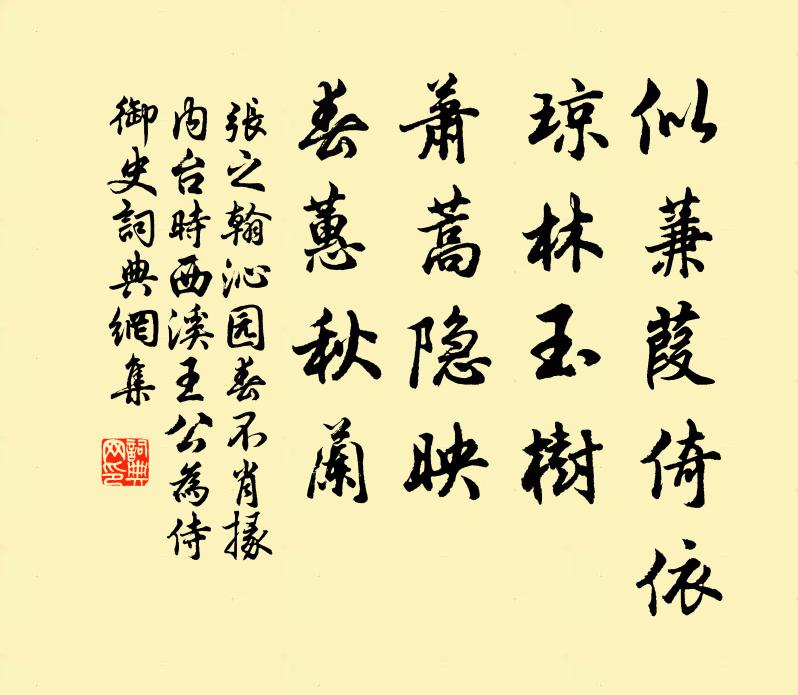 似蒹葭倚依
琼林玉樹
萧蒿隐映
春蕙秋蘭
張之翰沁园春不肖掾
内台時西溪王公為侍
御史詞典網集
詞典
网印